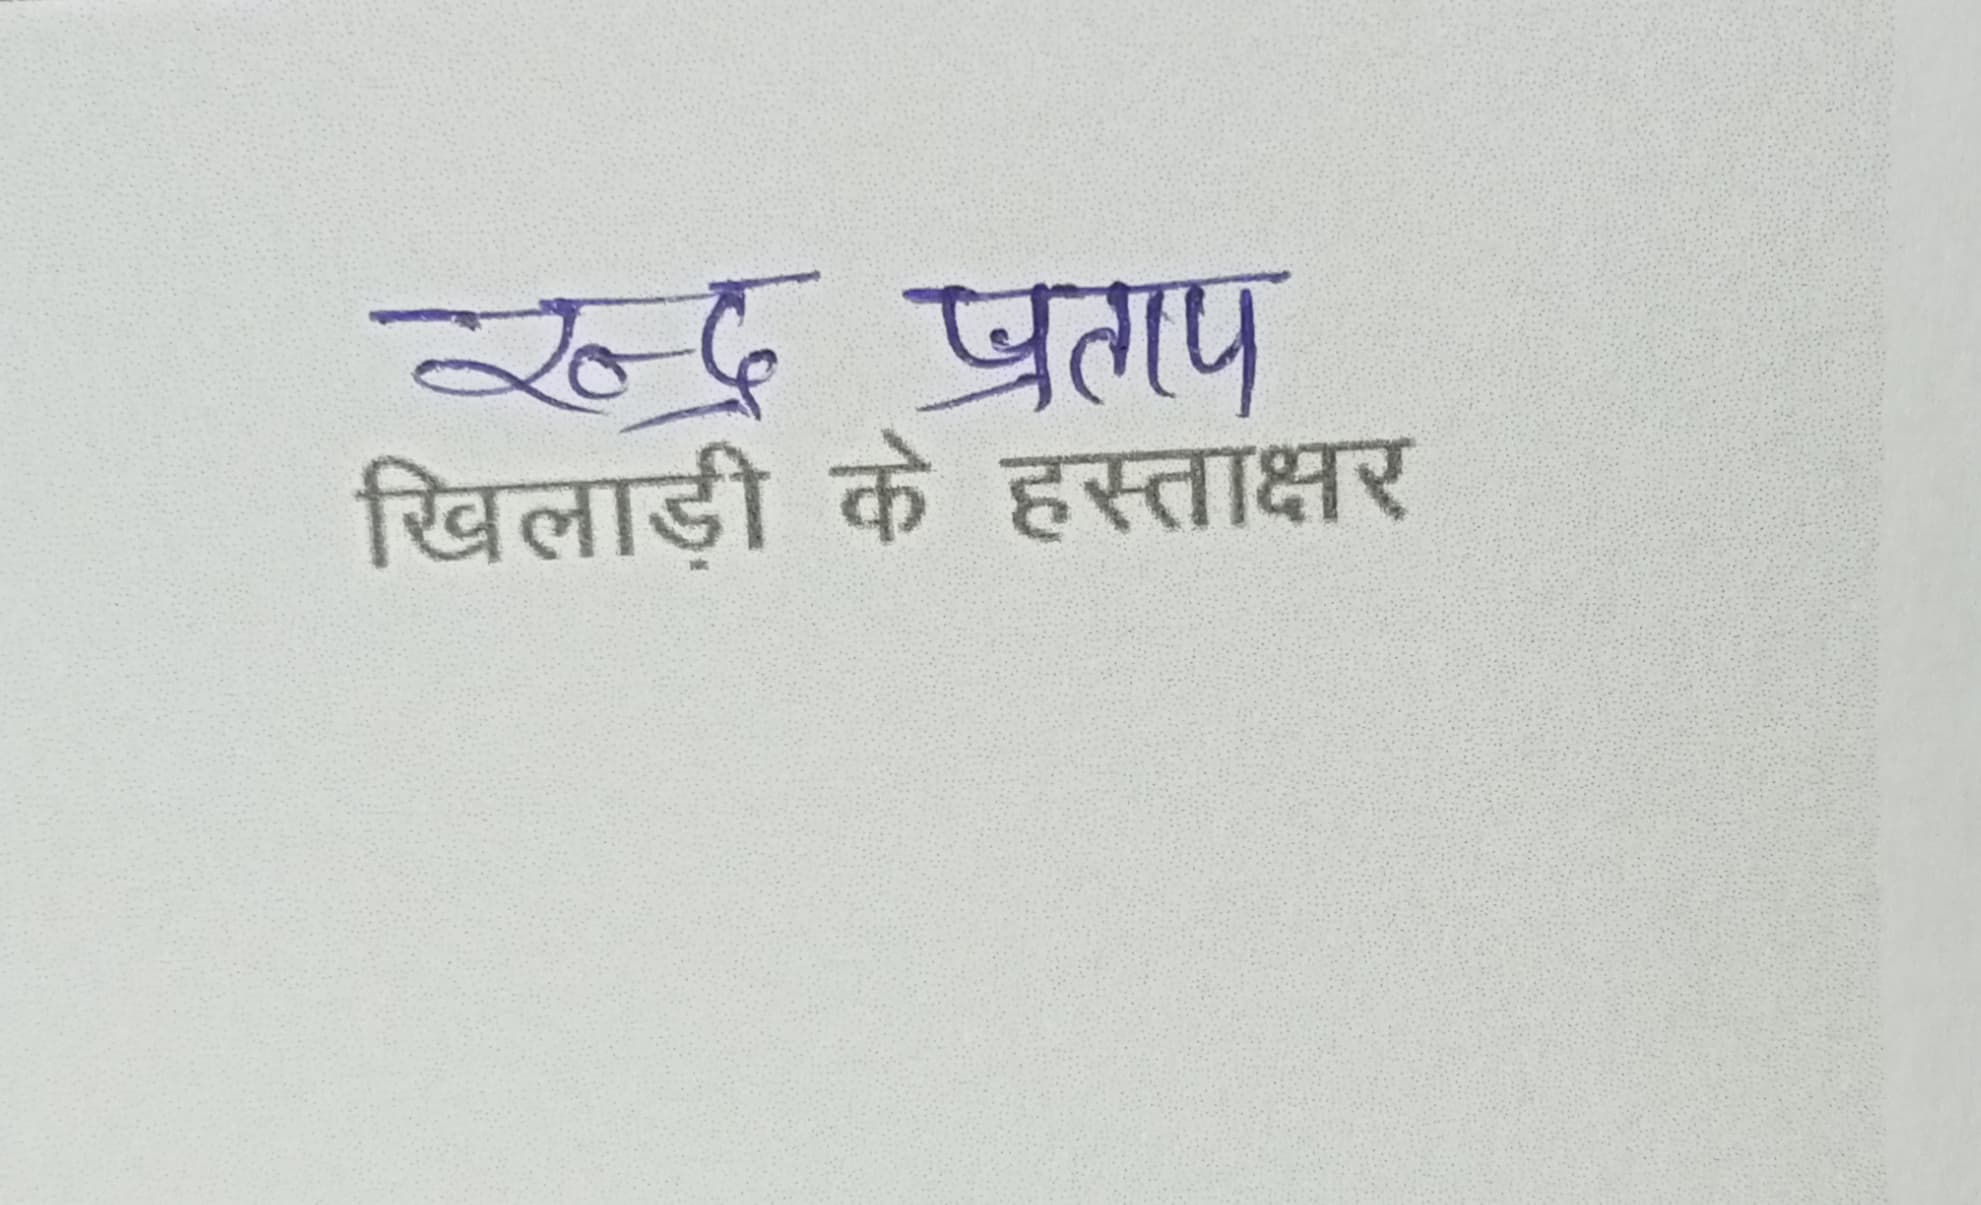 रुन्द्र प्रताप
खिलाड़ी के हस्ताक्षर